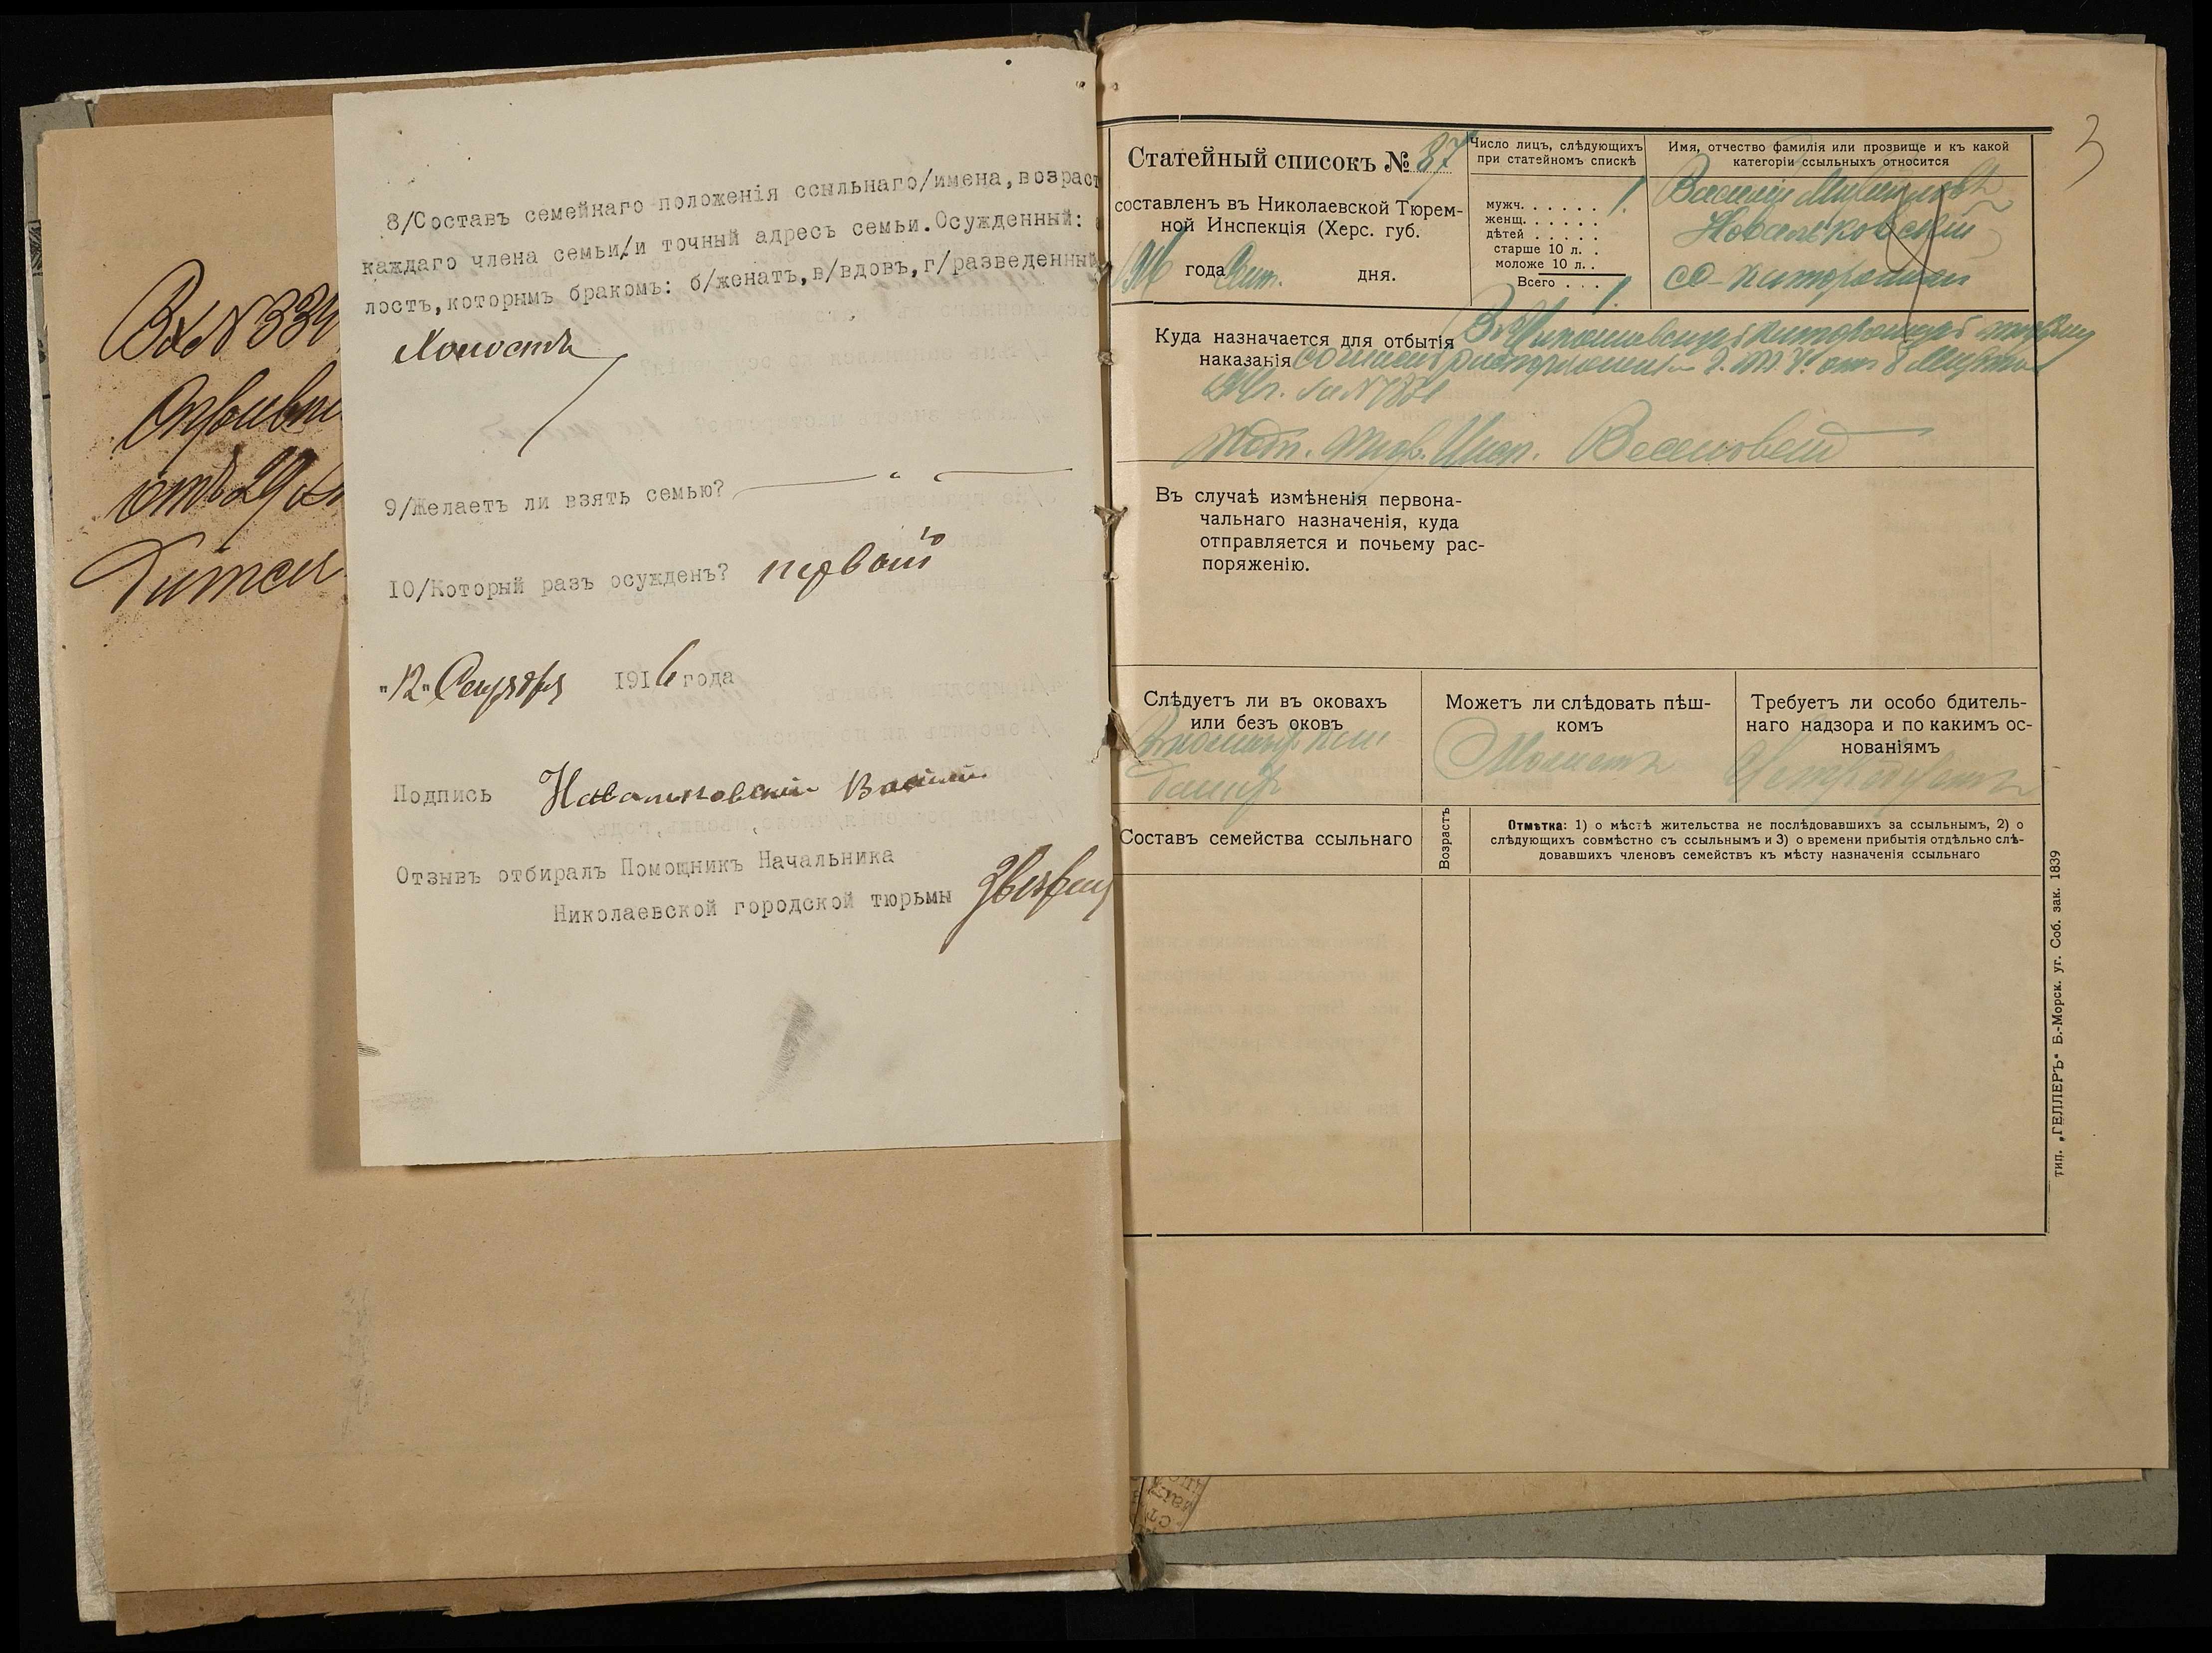 Вх №334
отъ 29
8/Составъ семейнаго положенія ссыльнаго/имена,возраст
каждаго члена семьи/и точный адресъ семьи.Осужденный:
лость,которымъ бракомъ: б/женатъ,в/вдовъ,г/разведенный
Холостъ
9/Желаетъ ли взять семью? — " —
10/Который разъ осужденъ? первый
"12" Сентября 1916 года
Подпись Навальковскій Василий
Отзывъ отбиралъ Помощникъ Начальника
Николаевской городской тюрьмы
3
Статейный списокъ № 87
составленъ въ Николаевской Тюрем-
ной Инспекція (Херс. губ.
1916 года Сент. дня.
Число лицъ, слѣдующихъ
при статейномъ спискѣ
мужч. . . . . . 1.
женщ. . . . . .
дѣтей . . . . .
старше 10 л. .
моложе 10 л. .
Всего . . . 1.
Имя, отчество фамилія или прозвище и къ какой
категоріи ссыльныхъ относится
Василій Михайловъ
Новальковскій
с-каторжный
Куда назначается для отбытія
наказанія
Въ каторжную тюрьму
согласно распоряженія Г. Т. У. отъ 8 Марта
за №
Тюр. Инсп.
Въ случаѣ измѣненія первона-
чальнаго назначенія, куда
отправляется и почьему рас-
поряженію.
Слѣдуетъ ли въ оковахъ
или безъ оковъ
Можетъ ли слѣдовать пѣш-
комъ
Можетъ
Требуетъ ли особо бдитель-
наго надзора и по какимъ ос-
нованіямъ
Не требуетъ
Составъ семейства ссыльнаго
Возрастъ
Отмѣтка: 1) о мѣстѣ жительства не послѣдовавшихъ за ссыльнымъ, 2) о
слѣдующихъ совмѣстно съ ссыльнымъ и 3) о времени прибытія отдѣльно слѣ-
довавшихъ членовъ семействъ къ мѣсту назначенія ссыльнаго
тип. „ГЕЛЛЕРЪ" Б.-Морск. уг. Соб. зак. 1839